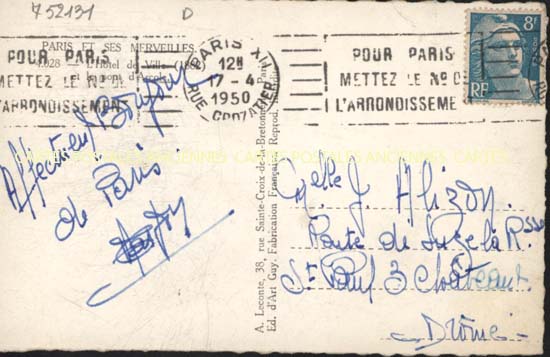 752131 D
PARIS ET SES MERVEILLES
L'Hôtel de Ville
et le pont d'Arcole
POUR PARIS
METTEZ LE Nº DE
L'ARRONDISSEMENT
PARIS XII
12H
17-4
1950
RUE CROZATIER
POUR PARIS
METTEZ LE Nº D
L'ARRONDISSEME
8F
RF
Affectueux Bonjour
de Paris.
A. Leconte, 38, rue Sainte-Croix-de-la-Bretonnerie, Paris
Ed. d'Art Guy. Fabrication Française. Reprod.
CARTES POSTALES ANCIENNES CARTES POSTALES ANCIENNES CARTES
Melle J. Alizon.
Route de Suze la Rsse
St Paul 3 Châteaux
Drôme